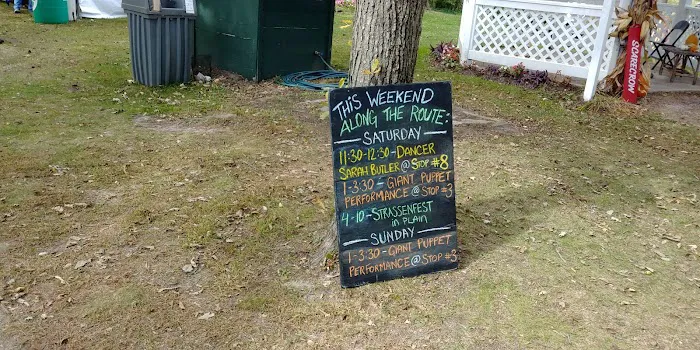 THIS WEEKEND
ALONG THE ROUTE:
SATURDAY
11:30-12:30-DANCER
SARAH BUTLER @ STOP #8
1-3:30- GIANT PUPPET
PERFORMANCE @ STOP #3
4-10-STRASSENFEST
in PLAIN
SUNDAY
1-3:30-GIANT PUPPET
PERFORMANCE @ STOP #3
SCARECROW